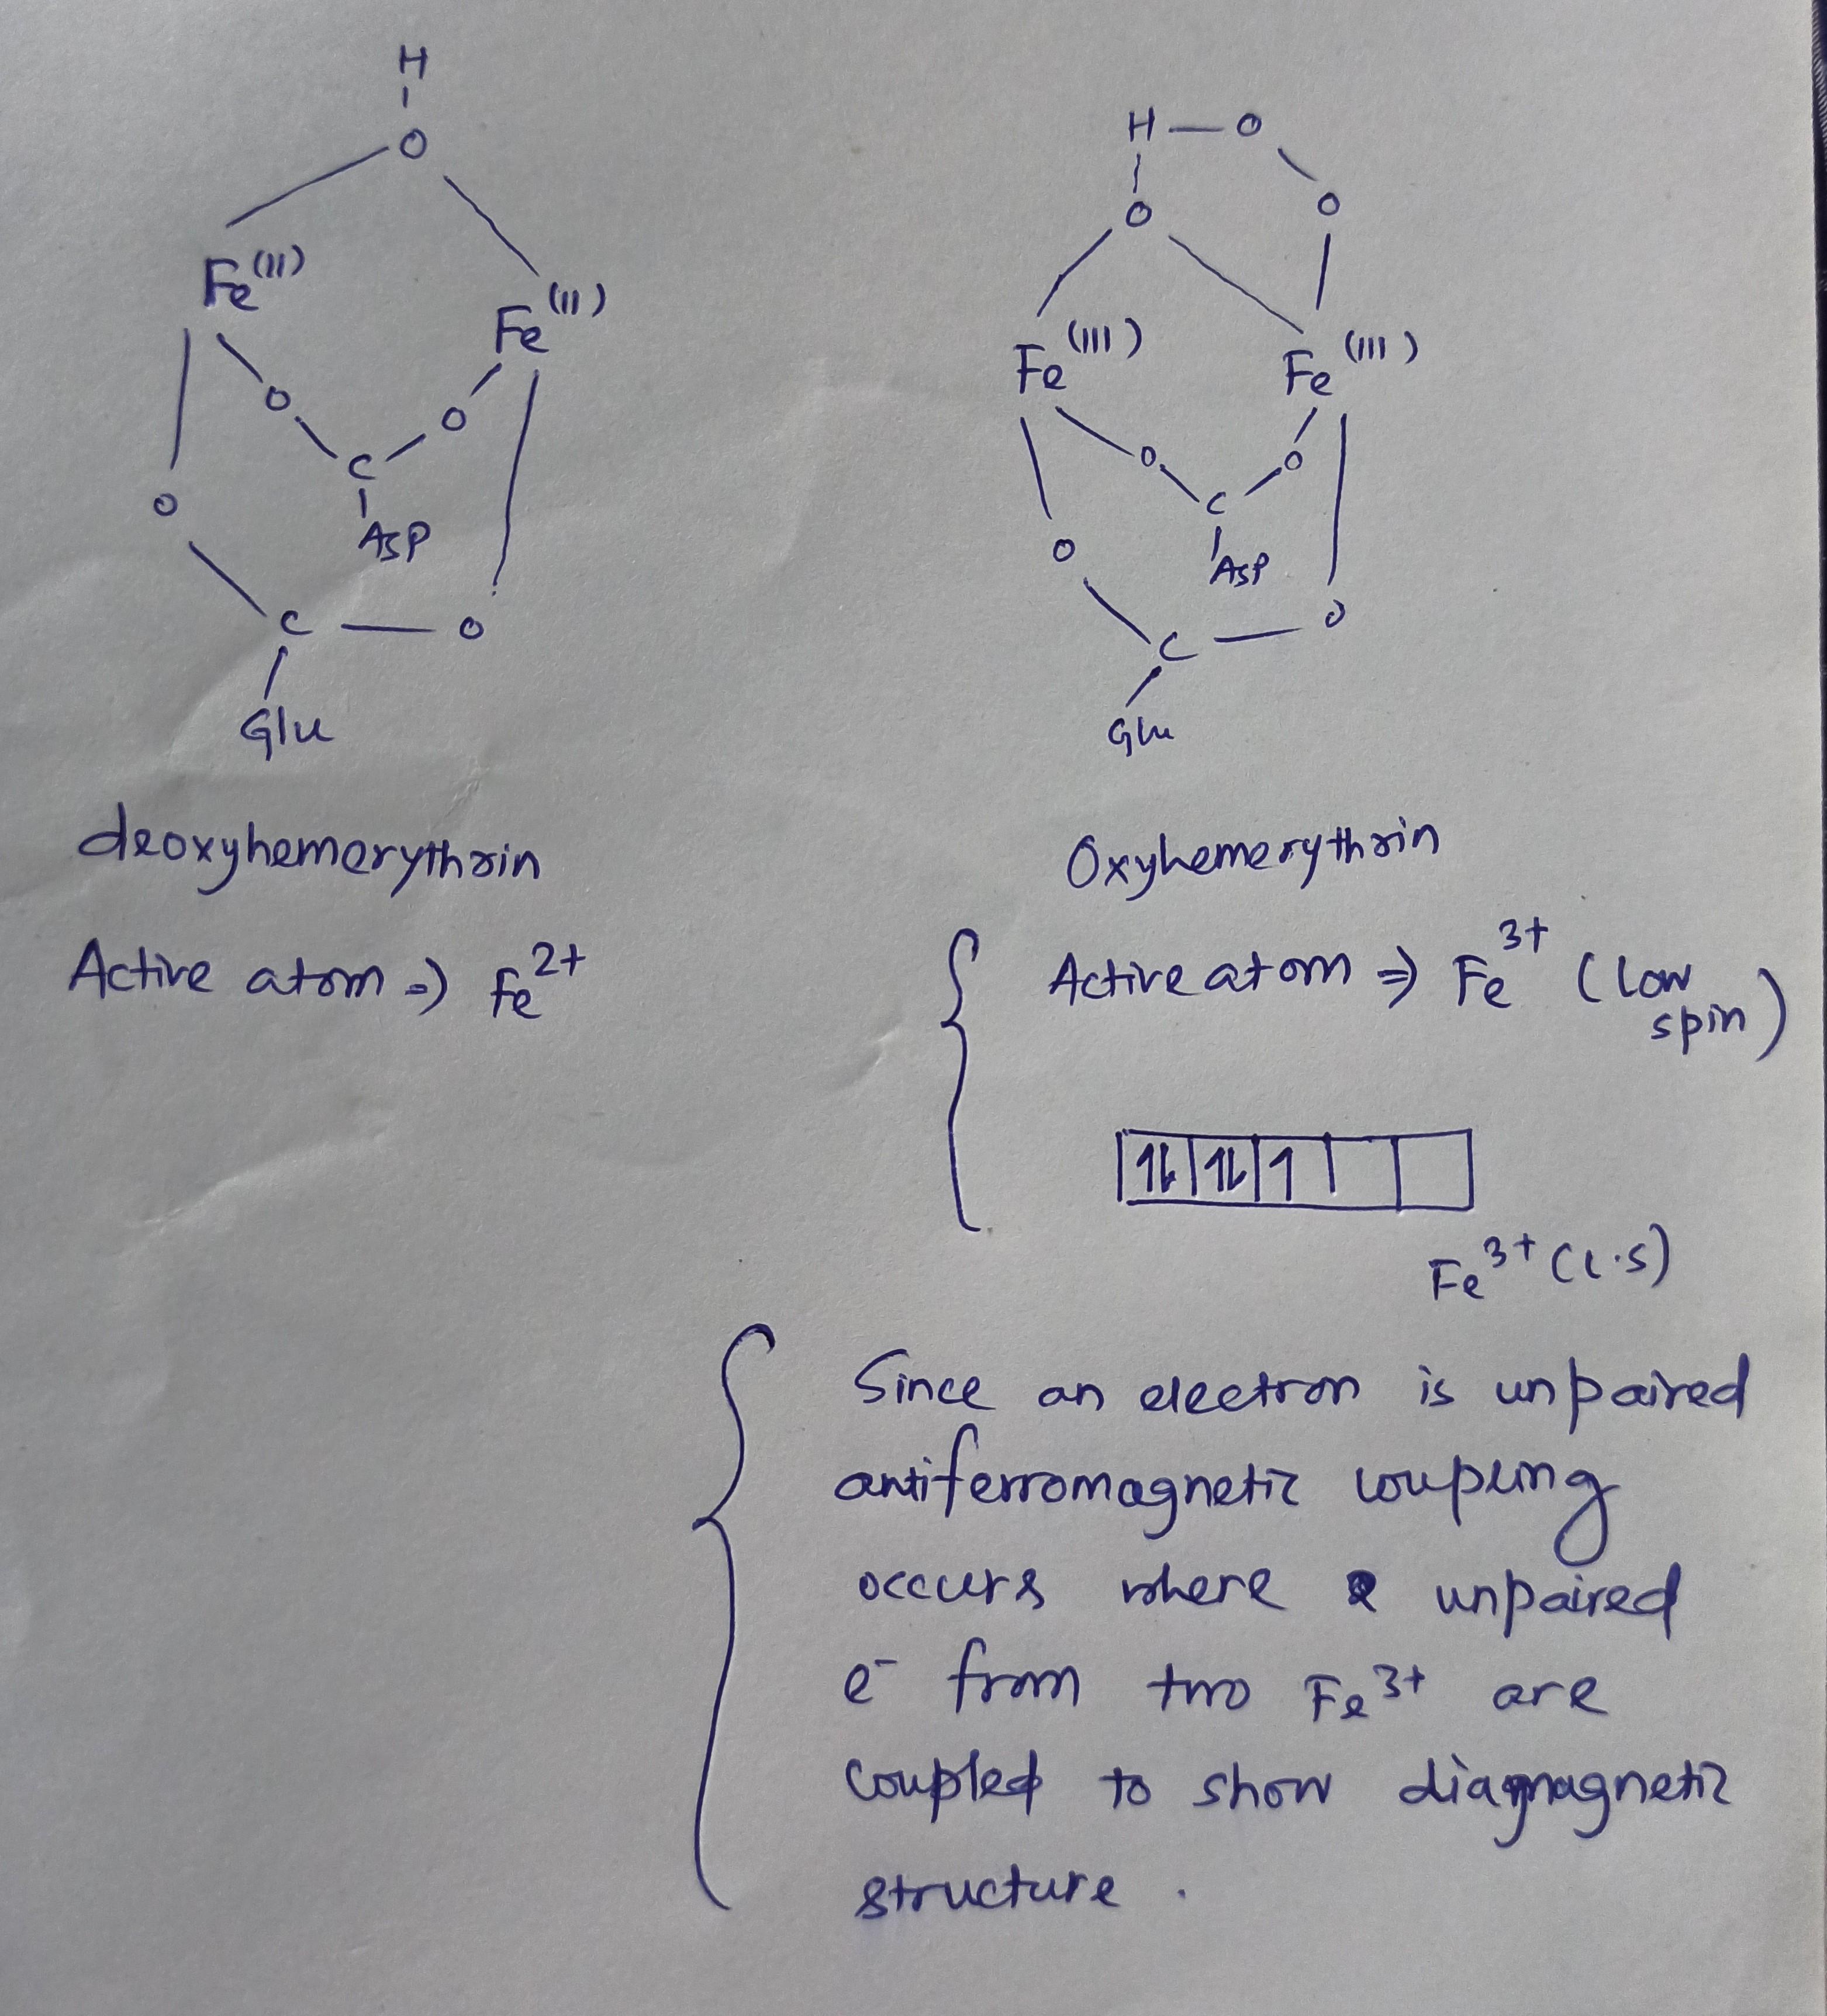 H
O
Fe(II)
Fe(II)
O
O
C
Asp
O
C
O
Glu
deoxyhemerythrin
Active atom => Fe2+
H — O
O
O
Fe(III)
Fe(III)
O
O
C
Asp
O
O
C
Glu
Oxyhemerythrin
Active atom => Fe3+ (low spin)
↑↓ ↑↓ ↑
Fe3+ (l.s)
Since an electron is unpaired
antiferromagnetic coupling
occurs where 2 unpaired
e- from two Fe3+ are
coupled to show diagmagnetic
structure .